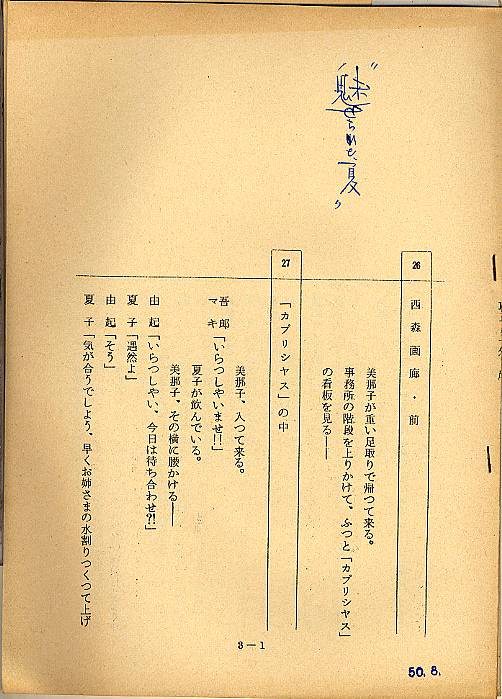 “魅せられた夏”
26
西森画廊・前
美那子が重い足取りで帰つて来る。
事務所の階段を上りかけて、ふつと「カプリシヤス」
の看板を見る――
27
「カプリシヤス」の中
美那子、入つて来る。
吾郎
マキ「いらつしやいませ!!」
夏子が飲んでいる。
美那子、その横に腰かける――
由起「いらつしやい、今日は待ち合わせ?!」
夏子「偶然よ」
由起「そう」
夏子「気が合うでしよう、早くお姉さまの水割りつくつて上げ
3―1
50.8.